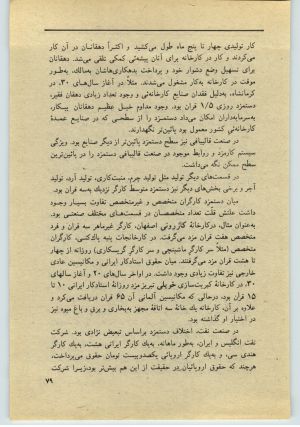 کار تولیدی چهار تا پنج ماه طول می‌کشید و اکثراً دهقانان در آن کار
می‌کردند و کار در کارخانه برای آنان پیشه‌ئی کمکی تلقی می‌شد. دهقانان
برای تسهیل وضع دشوار خود و پرداخت بدهکاری‌هاشان به‌مالک، به‌طور
موقت در کارخانه به‌کار مشغول می‌شدند. مثلاً در آغاز سال‌های ۳۰، در
کرمانشاه، به‌دلیل فقدان صنایع کارخانه‌ئی و وجود تعداد زیادی دهقان فقیر،
دستمزد روزی ۱/۵ قران بود. وجود مداوم خیل عظیم دهقانان بیکار،
به‌سرمایه‌داران امکان می‌داد دستمزد را از سطحی که در صنایع عمدهٔ
کارخانه‌ئی کشور معمول بود پائین‌تر نگهدارند.
در صنعت قالیبافی نیز سطح دستمزد پائین‌تر از دیگر صنایع بود. ویژگی
سیستم کارمزد و روابط موجود در صنعت قالیبافی دستمزد را در پائین‌ترین
سطح ممکن نگه می‌داشت.
در قسمت‌های دیگر تولید مثل تولید چرم، منبت‌کاری، تولید آرد، تولید
آجر و برخی بخش‌های دیگر نیز دستمزد متوسط کارگر نزدیک به‌سه قران بود.
میان دستمزد کارگران متخصص و غیرمتخصص تفاوت بسیار وجود
داشت علتش قلت تعداد متخصصان در قسمت‌های مختلف صنعتی بود.
به‌عنوان مثال، درکارخانهٔ کازرونی اصفهان، کارگر غیرماهر سه قران و فرد
متخصص هفت قران مزد می‌گرفت. در کارخانجات پنبه پاک‌کنی، کارگران
متخصص (مثلاً سر کارگر ماشینچی و سر کارگر کربسکاری)، روزانه از چهار
تا هشت قران مزد می‌گرفتند. میان حقوق استادکار ایرانی و مکانیسین عادی
خارجی نیز تفاوت زیادی وجود داشت. در اواخر سال‌های ۲۰ و آغاز سالهای
۳۰، در کارخانهٔ کبریت‌سازی خویلی تبریز مزد روزانهٔ استادکار ایرانی ۱۰ تا
۱۵ قران بود. درحالی که مکانیسین آلمانی آن ۶۵ قران دریافت می‌کرد و
علاوه بر آن، کارخانه یک خانهٔ سه اتاقهٔ مجهز به‌بخاری و برق و باغ میوه نیز
در اختیار او گذاشته بود.
در صنعت نفت، اختلاف دستمزد براساس تبعیض نژادی بود. شرکت
نفت انگلیس و ایران، به‌طور ماهانه، به‌یک کارگر ایرانی هشت، به‌یک کارگر
هندی سی، و به‌یک کارگر اروپائی یکصدوبیست تومان حقوق می‌پرداخت،
هرچند که حقوق اروپائیان در حقیقت از این هم بیش‌تر بود، زیرا شرکت
۷۹